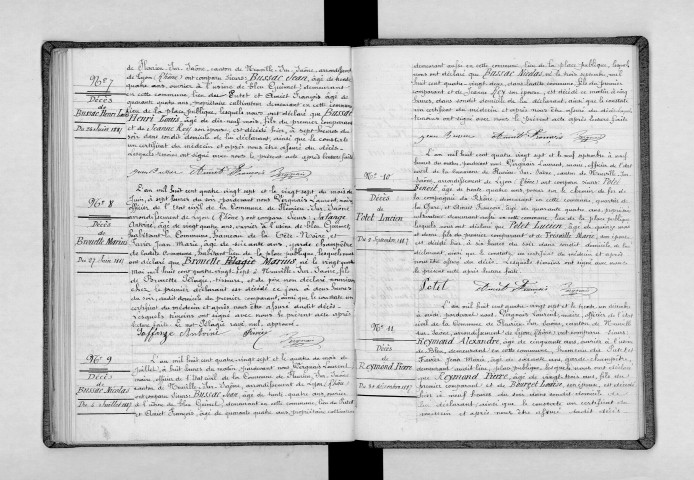 de Fleurieu-sur-Saône, canton de Neuville-sur-Saône, arrondissement
de Lyon (Rhône) ont comparu sieurs Bussac Jean, âgé de trente
quatre ans, ouvrier à l'usine de bleu Guimet, demeurant
en cette commune, lieu du Potet et Amiet François, âgé de
quarante quatre ans, propriétaire cultivateur demeurant en cette commune
lieu de la place publique, lesquels nous ont déclaré que Bussac
Henri Louis, âgé de dix-neuf mois, fils du premier comparant
et de Jeanne Rey son épouse, est décédé hier, à sept heures du
soir dans sondit domicile de la déclarant, ainsi que le constate
un certificat du médecin et après nous être assuré du décès.
lesquels témoins ont signé avec nous le présent acte après lecture faite
N° 7
Décès
de
Bussac Henri Louis
Du 24 Juin 1887
L'an mil huit cent quatre vingt sept et le vingt sept du mois de
Juin, à sept heures du soir, par devant nous Vergnais Laurent, maire
officier de l'état civil de la Commune de Fleurieu-sur-Saône
arrondissement de Lyon (Rhône) ont comparu Sieurs Laffange
Antoine, âgé de ans, ouvrier à l'usine de bleu Guimet,
habitant la Commune, hameau de la Tête-Noire, et
Favier Jean Marie, âgé de soixante ans, garde champêtre
de ladite Commune, habitant lieu de la place publique, lesquels nous
ont déclaré que Brouette Pélagie Marius né le vingt
Mai mil huit cent quatre vingt sept à Neuville-sur-Saône, fils
de Brouette Pélagie, tisseuse, et de père non déclaré
chez le premier déclarant est décédé ce jour à deux heures
du soir, audit domicile du premier comparant, ainsi que le constate un
certificat du médecin et après nous être assuré dudit décès.
Lesquels témoins ont signé avec nous le présent acte après
lecture faite. Le mot Pélagie rayé nul, approuvé
Laffange Antoine Favier
N° 8
Décès
de
Brouette Marius
Du 27 Juin 1887
L'an mil huit cent quatre vingt sept et le quatre du mois de
Juillet, à huit heures du matin par devant nous Vergnais Laurent
maire officier de l'état civil de la Commune de Fleurieu-sur-Saône,
canton de Neuville-sur-Saône, arrondissement de Lyon (Rhône)
ont comparu Sieurs Bussac Jean, âgé de trente quatre ans, ouvrier
à l'usine de bleu Guimet, demeurant en cette commune, lieu du Potet
et Amiet François, âgé de quarante quatre ans, propriétaire cultivateur
N° 9
Décès
de
Bussac Nicolas
Du 4 Juillet 1887
demeurant aussi en cette commune, lieu de la place publique, lesquels
nous ont déclaré que Bussac Nicolas, né le trois mil
huit cent quatre-vingt-deux, dans ladite commune, fils du premier
comparant et de Jeanne Rey son épouse, est décédé ce matin à cinq
heures, dans sondit domicile de la déclarant, ainsi que le constate
un certificat du médecin et après nous être assuré dudit décès, lesquels
témoins ont signé avec nous le présent acte après lecture faite.
L'an mil huit cent quatre vingt sept et le neuf septembre à neuf
heures du matin, pardevant nous Vergnais Laurent, maire, officier de l'état
civil de la Commune de Fleurieu-sur-Saône, canton de Neuville-sur-
Saône, arrondissement de Lyon (Rhône) ont comparu Sieurs Potet
Benoît, âgé de trente quatre ans, poseur au chemin de fer de
la compagnie du Rhône, demeurant en cette commune, quartier de
la Gare, et Amiet François, âgé de quarante quatre ans, propriétaire
cultivateur demeurant aussi en cette commune, lieu de la place publique
lesquels nous ont déclaré que Potet Lucien, âgé de quinze mois
et demi, fils du premier comparant et de Marie, son épouse
est décédé hier, à six heures du soir dans sondit domicile de la
déclarant, ainsi que le constate un certificat du médecin et après
nous être assuré du décès. Lesquels témoins ont signé avec nous
le présent acte après lecture faite.
Potet Amiet François
N° 10
Décès
de
Potet Lucien
Du 8 Septembre 1887
L'an mil huit cent quatre vingt sept et le trente un décembre
à midi, pardevant nous Vergnais Laurent, maire, officier de l'état
civil de la Commune de Fleurieu-sur-Saône, canton de Neuville-
sur-Saône, arrondissement de Lyon (Rhône) ont comparu Sieurs
Reymond Alexandre, âgé de cinquante ans, ouvrier à l'usine
de Bleu, demeurant en cette commune, hameau du Potet et
Favier Jean Marie, âgé de soixante ans, garde-champêtre,
demeurant audit lieu, place publique, lesquels nous ont déclaré
que Reymond Pierre, âgé de vingt-trois ans, fils du
premier comparant et de Bourget Louise son épouse, est décédé
hier à neuf heures du soir dans sondit domicile de
la déclarant ainsi que le constate un certificat du
médecin et après nous être assuré dudit décès.
N° 11
Décès
de
Reymond Pierre
Du 30 décembre 1887